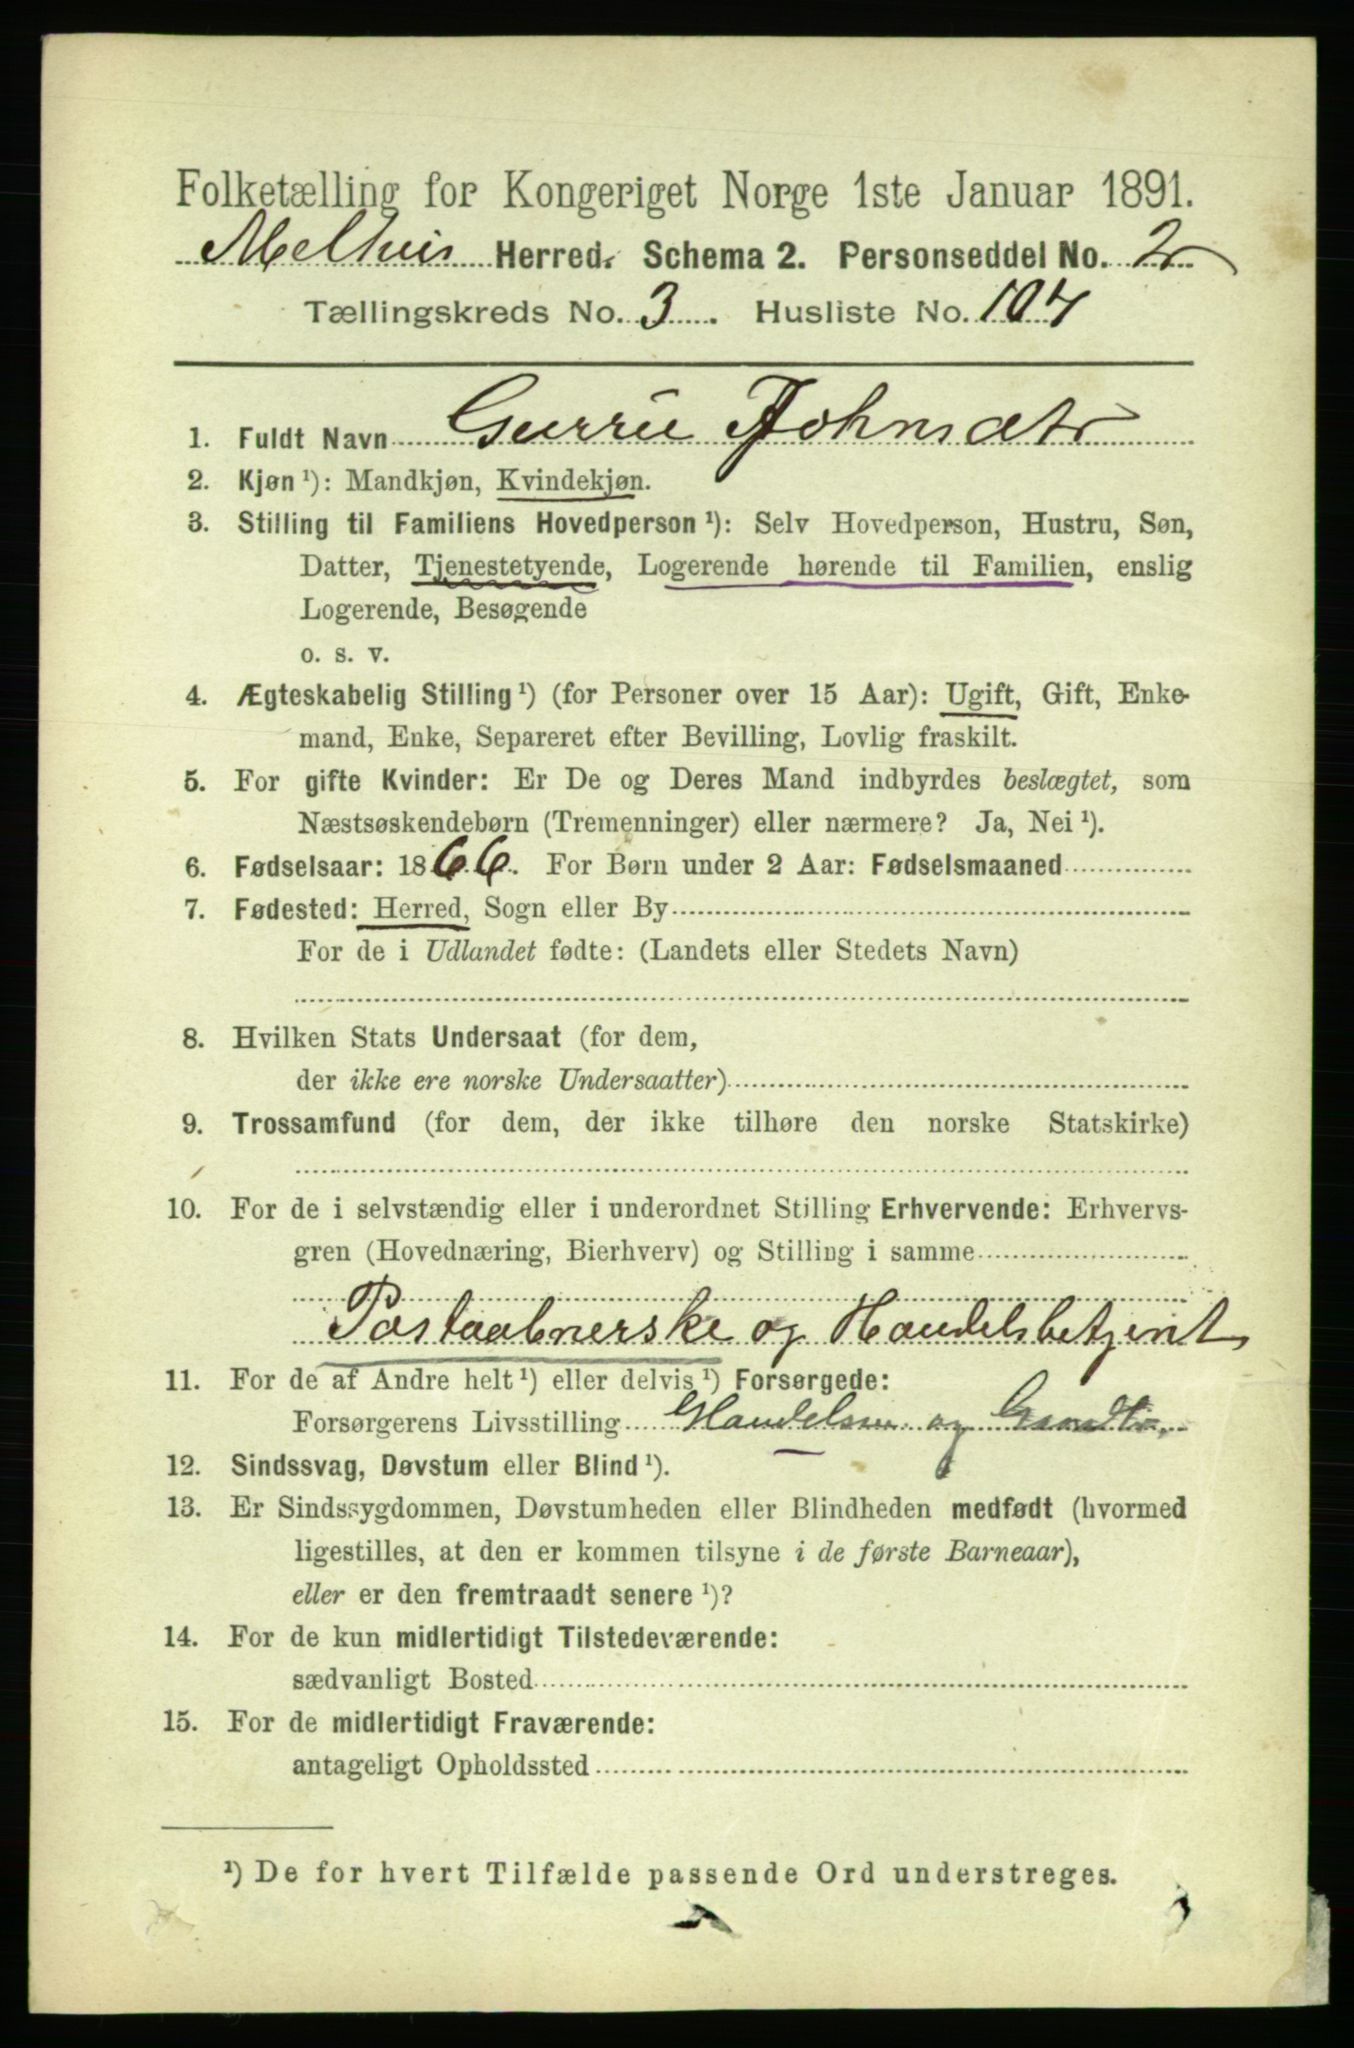 Folketælling for Kongeriget Norge 1ste Januar 1891.
Melhus Herred. Schema 2. Personseddel No. 2
Tællingskreds No. 3. Husliste No. 107
1. Fuldt Navn Johnsdtr
2. Kjøn ¹): Mandkjøn, Kvindekjøn.
3. Stilling til Familiens Hovedperson ¹): Selv Hovedperson, Hustru, Søn,
Datter, Tjenestetyende, Logerende hørende til Familien, enslig
Logerende, Besøgende
o. s. v.
4. Ægteskabelig Stilling ¹) (for Personer over 15 Aar): Ugift, Gift, Enke-
mand, Enke, Separeret efter Bevilling, Lovlig fraskilt.
5. For gifte Kvinder: Er De og Deres Mand indbyrdes beslægtet, som
Næstsøskendebørn (Tremenninger) eller nærmere? Ja, Nei ¹).
6. Fødselsaar: 1866. For Børn under 2 Aar: Fødselsmaaned
7. Fødested: Herred, Sogn eller By
For de i Udlandet fødte: (Landets eller Stedets Navn)
8. Hvilken Stats Undersaat (for dem,
der ikke ere norske Undersaatter)
9. Trossamfund (for dem, der ikke tilhøre den norske Statskirke)
10. For de i selvstændig eller i underordnet Stilling Erhvervende: Erhvervs-
gren (Hovednæring, Bierhverv) og Stilling i samme
Postaabnerske og Handelsbetjent
11. For de af Andre helt ¹) eller delvis ¹) Forsørgede:
Forsørgerens Livsstilling og
12. Sindssvag, Døvstum eller Blind ¹).
13. Er Sindssygdommen, Døvstumheden eller Blindheden medfødt (hvormed
ligestilles, at den er kommen tilsyne i de første Barneaar),
eller er den fremtraadt senere ¹)?
14. For de kun midlertidigt Tilstedeværende:
sædvanligt Bosted
15. For de midlertidigt Fraværende:
antageligt Opholdssted
¹) De for hvert Tilfælde passende Ord understreges.